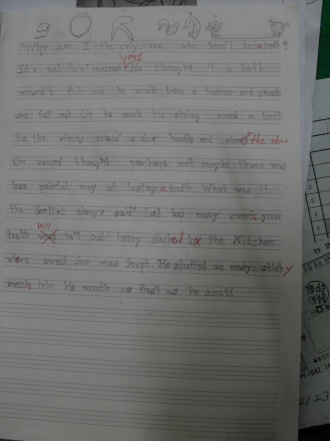 S Q R
"Why am I the only one who hasn't lost a tooth?
It's not fair" moaned Henry He thought if a tooth
wouldn't fall out he could take a hammer and smash
one fall out. Or he could tie string round a tooth
tie the string round a door handle and slam the door
On second thought perhaps not maybe there was
less painful ways of losing a tooth. What was it
the dentist always said? Eat too many sweets your
teeth will fall out! Henry dashed to the kitchen
where sweet jar was kept. He stuffed as many sticky
sweets into his mouth as fast as he could.